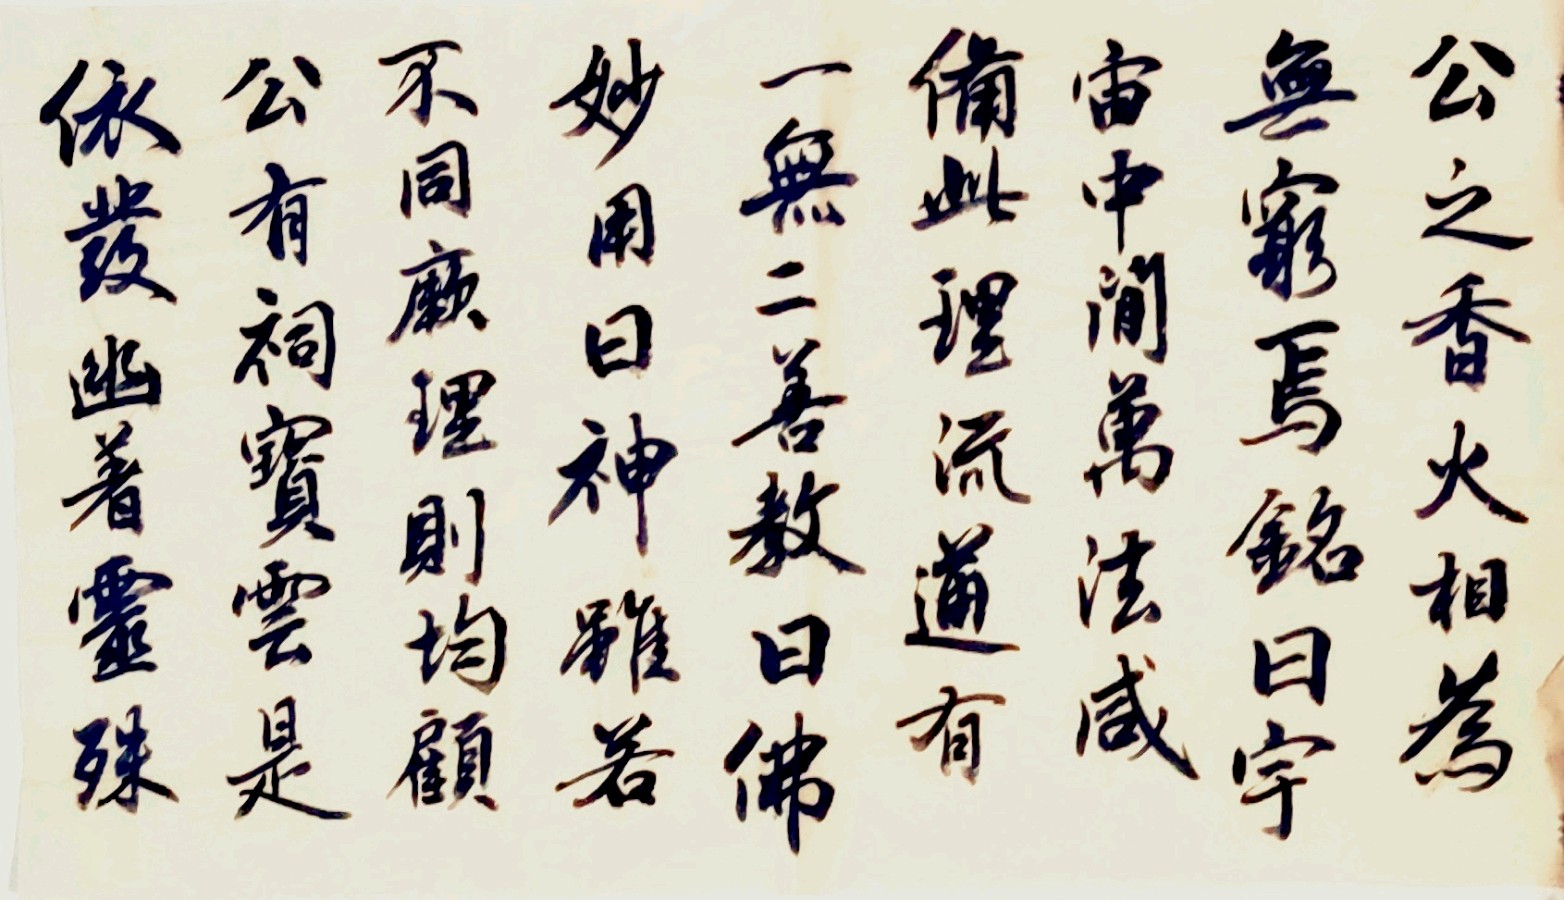 公之香火相為
無窮焉銘曰宇
宙中間萬法咸
備此理流通有
一無二善教曰佛
妙用曰神雖若
不同厥理則均顧
公有祠寶雲是
依發幽著靈殊